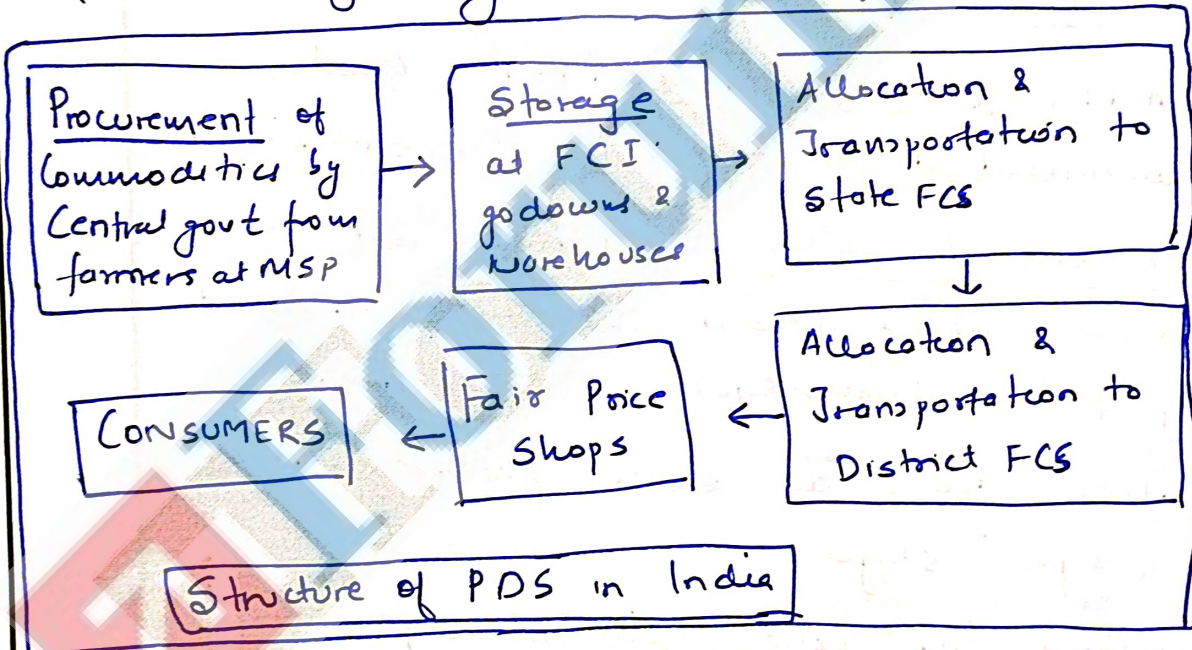 Procurement of
Commodities by
Central govt from
farmers at MSP
Storage
at FCI
godowns &
warehouses
Allocation &
Transportation to
State FCS
Allocation &
Transportation to
District FCS
Fair Price
Shops
CONSUMERS
Structure of PDS in India
Forum